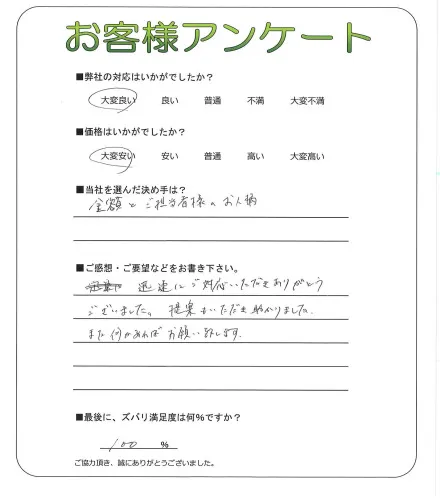 お客様アンケート
■弊社の対応はいかがでしたか?
大変良い 良い 普通 不満 大変不満
■価格はいかがでしたか?
大変安い 安い 普通 高い 大変高い
■当社を選んだ決め手は?
金額とご担当者様のお人柄
■ご感想・ご要望などをお書き下さい。
迅速にご対応いただきありがとう
ございました。提案もいただき助かりました。
また何かあればお願い致します。
■最後に、ズバリ満足度は何%ですか?
100 %
ご協力頂き、誠にありがとうございました。